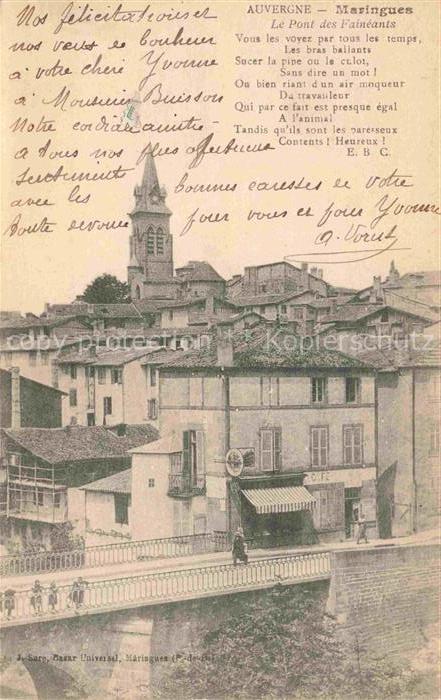 AUVERGNE — Maringues
Le Pont des Fainéants
Vous les voyez par tous les temps,
Les bras ballants
Sucer la pipe ou le culot,
Sans dire un mot !
Ou bien riant d'un air moqueur
Du travailleur
Qui par ce fait est presque égal
A l'animal
Tandis qu'ils sont les paresseux
Contents ! Heureux !
E. B. C.
Nos félicitations et
nos vœux de bonheur
à votre chère Yvonne
à Monsieur Buisson
Notre cordiale amitié
à vous nos plus affectueux
sentiments
avec les bonnes caresses de votre
toute dévouée pour vous et pour Yvonne
CAFÉ
© copyright delcampe
Marktschatz
J. Sure, Bazar Universel, Maringues (P.-de-D.)